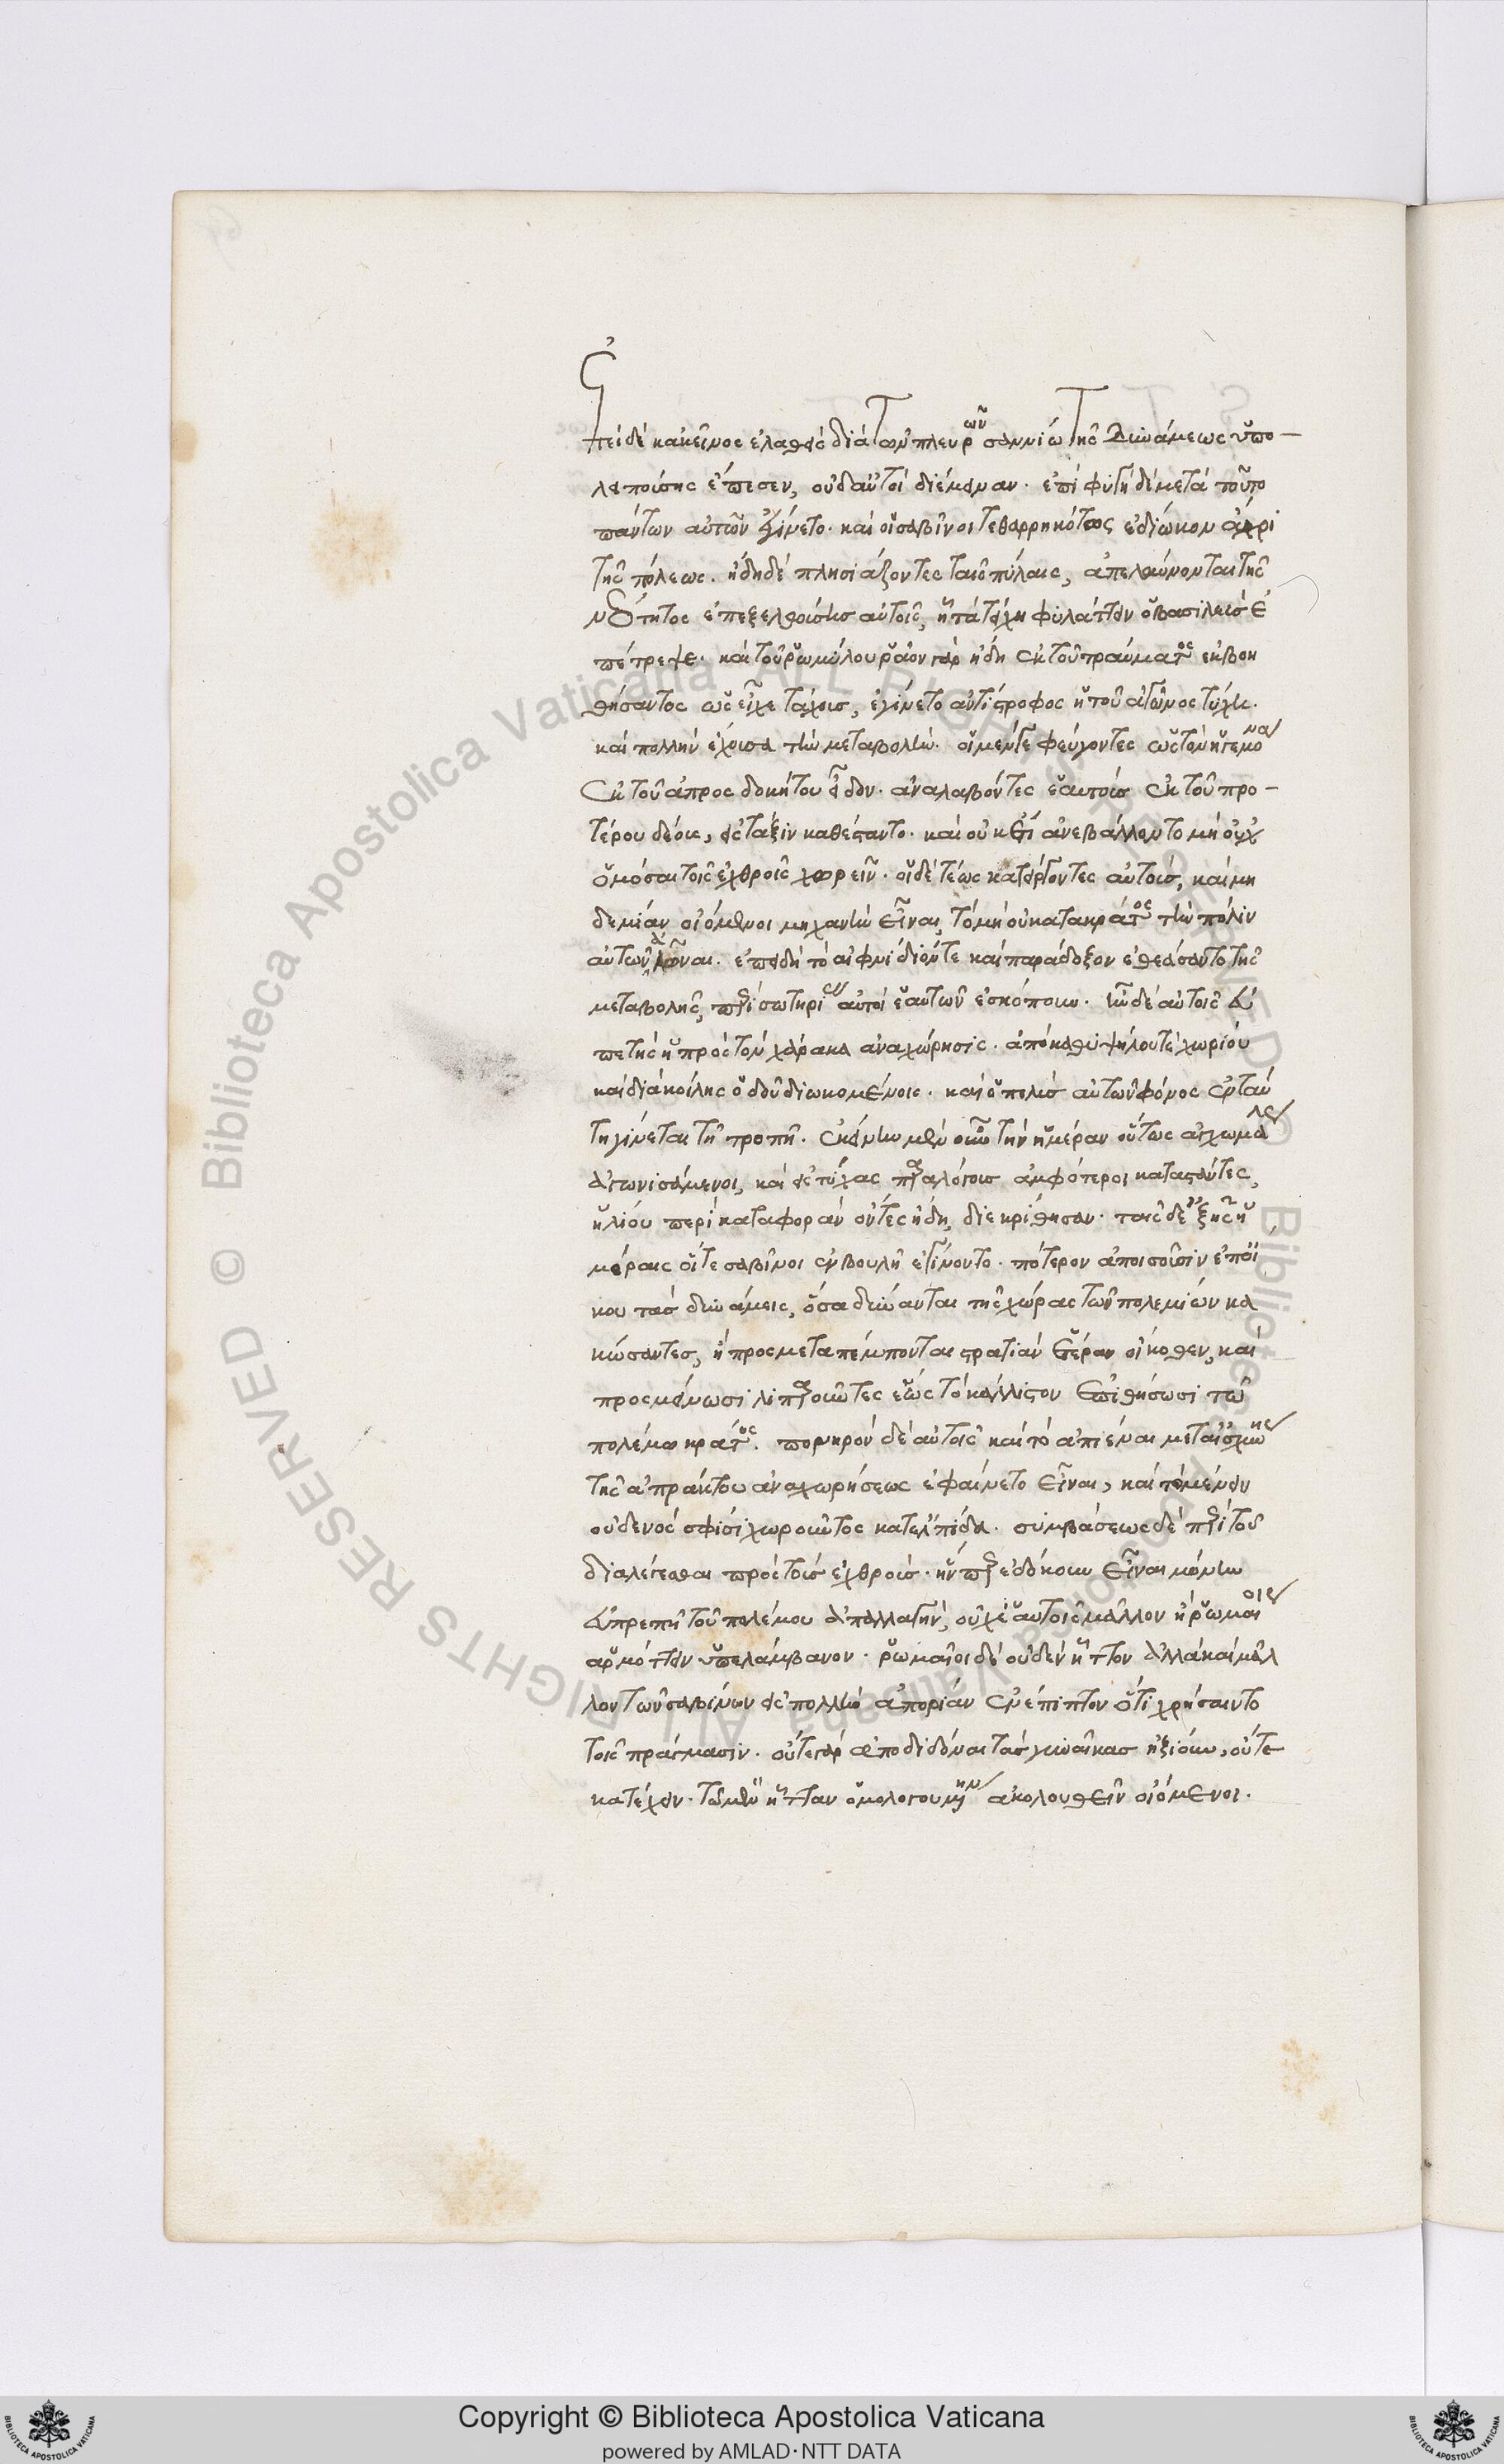 ἐπεὶ δὲ κἀκεῖνος ἐλαθεὶς διὰ τῶν πλευρῶν σαννίῳ τῆς δυνάμεως ὑπο-
λειπούσης ἔπεσεν, οὐδ' αὐτοὶ διέμειναν. ἐπὶ φυγῇ δὲ μετὰ τοῦτο
πάντων αὐτῶν ἐγίνετο. καὶ οἱ σαβῖνοι τεθαρρηκότως ἐδίωκον ἄχρι
τῆς πόλεως. ἤδη δὲ πλησιάζοντες ταῖς πύλαις, ἀπελαύνονται τῆς
νεότητος ἐπεξελθούσης αὐτοῖς, ᾗ τὰ τείχη φυλάττειν ὁ βασιλεὺς ἐ
πέτρεψε. καὶ τοῦ ῥωμύλου ῥᾷον γὰρ ἤδη ἐκ τοῦ τραύματος ἐκβοη
θήσαντος ὡς εἶχε τάχους, ἐγίνετο ἀντίστροφος ἡ τοῦ ἀγῶνος τύχη.
καὶ πολλὴν ἔχουσα τὴν μεταβολήν. οἱ μέν τε φεύγοντες ὡς τὸν ἡγεμόνα
ἐκ τοῦ ἀπροσδοκήτου εἶδον. ἀναλαβόντες ἑαυτοὺς ἐκ τοῦ προ-
τέρου δέους, εἰς τάξιν καθίσταντο. καὶ οὐκέτι ἀνεβάλλοντο μὴ οὐχ
ὁμόσαι τοῖς ἐχθροῖς χωρεῖν. οἱ δὲ τέως κατείργοντες αὐτοὺς, καὶ μη
δεμίαν οἰόμενοι μηχανὴν εἶναι, τὸ μὴ οὐ κατακράτος τὴν πόλιν
αὐτῶν ἁλῶναι. ἐπειδὴ τὸ αἰφνίδιόν τε καὶ παράδοξον ἐθεάσαντο τῆς
μεταβολῆς, περὶ σωτηρίας αὐτοὶ ἑαυτῶν ἐσκόπουν. ἦν δὲ αὐτοῖς εὐ
πετὴς ἡ πρὸς τὸν χάρακα ἀναχώρησις. ἀπὸ καθυψήλου τε χωρίου
καὶ διὰ κοίλης ὁδοῦ διωκομένοις. καὶ ὁ πολὺς αὐτῶν φόνος ἐνταύ
τη γίνεται τῇ τροπῇ. ἐκείνην μὲν οὖν τὴν ἡμέραν οὕτως ἀγχωμάλως
ἀγωνισάμενοι, καὶ εἰς τύχας παραλόγους ἀμφότεροι καταστάντες,
ἡλίου περὶ καταφορὰν ὄντες ἤδη, διεκρίθησαν. ταῖς δὲ ἑξῆς ἡ
μέραις οἵ τε σαβῖνοι ἐν βουλῇ ἐγίνοντο. πότερον ἀποίσουσιν ἐπ' οἴ
κου τὰς δυνάμεις, ὅσα δύνανται τῆς χώρας τῶν πολεμίων κα
κώσαντες, ἢ προσμεταπέμπονται στρατιὰν ἑτέραν οἴκοθεν, καὶ
προσμένωσι λιπαροῦντες ἕως τὸ κάλλιστον ἐπιθήσωσι τῷ
πολέμῳ κράτος. πονηρὸν δὲ αὐτοῖς καὶ τὸ ἀπιέναι μετ' αἰσχύνης
τῆς ἀπράκτου ἀναχωρήσεως ἐφαίνετο εἶναι, καὶ τὸ μένειν
οὐδενὸς σφίσι χωροῦντος κατελπίδα. συμβάσεως δὲ περὶ τοῦ
διαλέγεσθαι πρὸς τοὺς ἐχθρούς. ἥνπερ ἐδόκουν εἶναι μόνην
εὐπρεπῆ τοῦ πολέμου ἀπαλλαγήν, οὐχ ἑαυτοῖς μᾶλλον ἢ ῥωμαίοις
ἁρμόττειν ὑπελάμβανον. ῥωμαῖοι δὲ οὐδὲν ἧττον ἀλλὰ καὶ μᾶλ
λον τῶν σαβίνων εἰς πολλὴν ἀπορίαν ἐνέπιπτον ὅτι χρήσαιντο
τοῖς πράγμασιν. οὔτε γὰρ ἀποδιδόναι τὰς γυναῖκας ἠξίουν, οὔτε
κατέχειν. τῷ μὲν ἧτταν ὁμολογουμένην ἀκολουθεῖν οἰόμενοι.